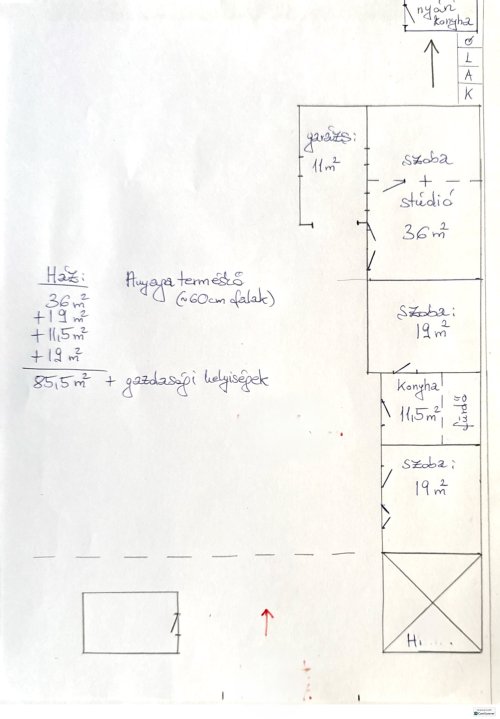 nyári
konyha
Ó
L
A
K
garázs:
11 m²
szoba
+
stúdió
36 m²
Ház:
36 m²
+ 19 m²
+ 11,5 m²
+ 19 m²
85,5 m² + gazdasági helyiségek
Anyaga terméskő
(~60cm falak)
szoba:
19 m²
konyha
11,5 m²
fürdő
szoba:
19 m²
H......
CamScanner